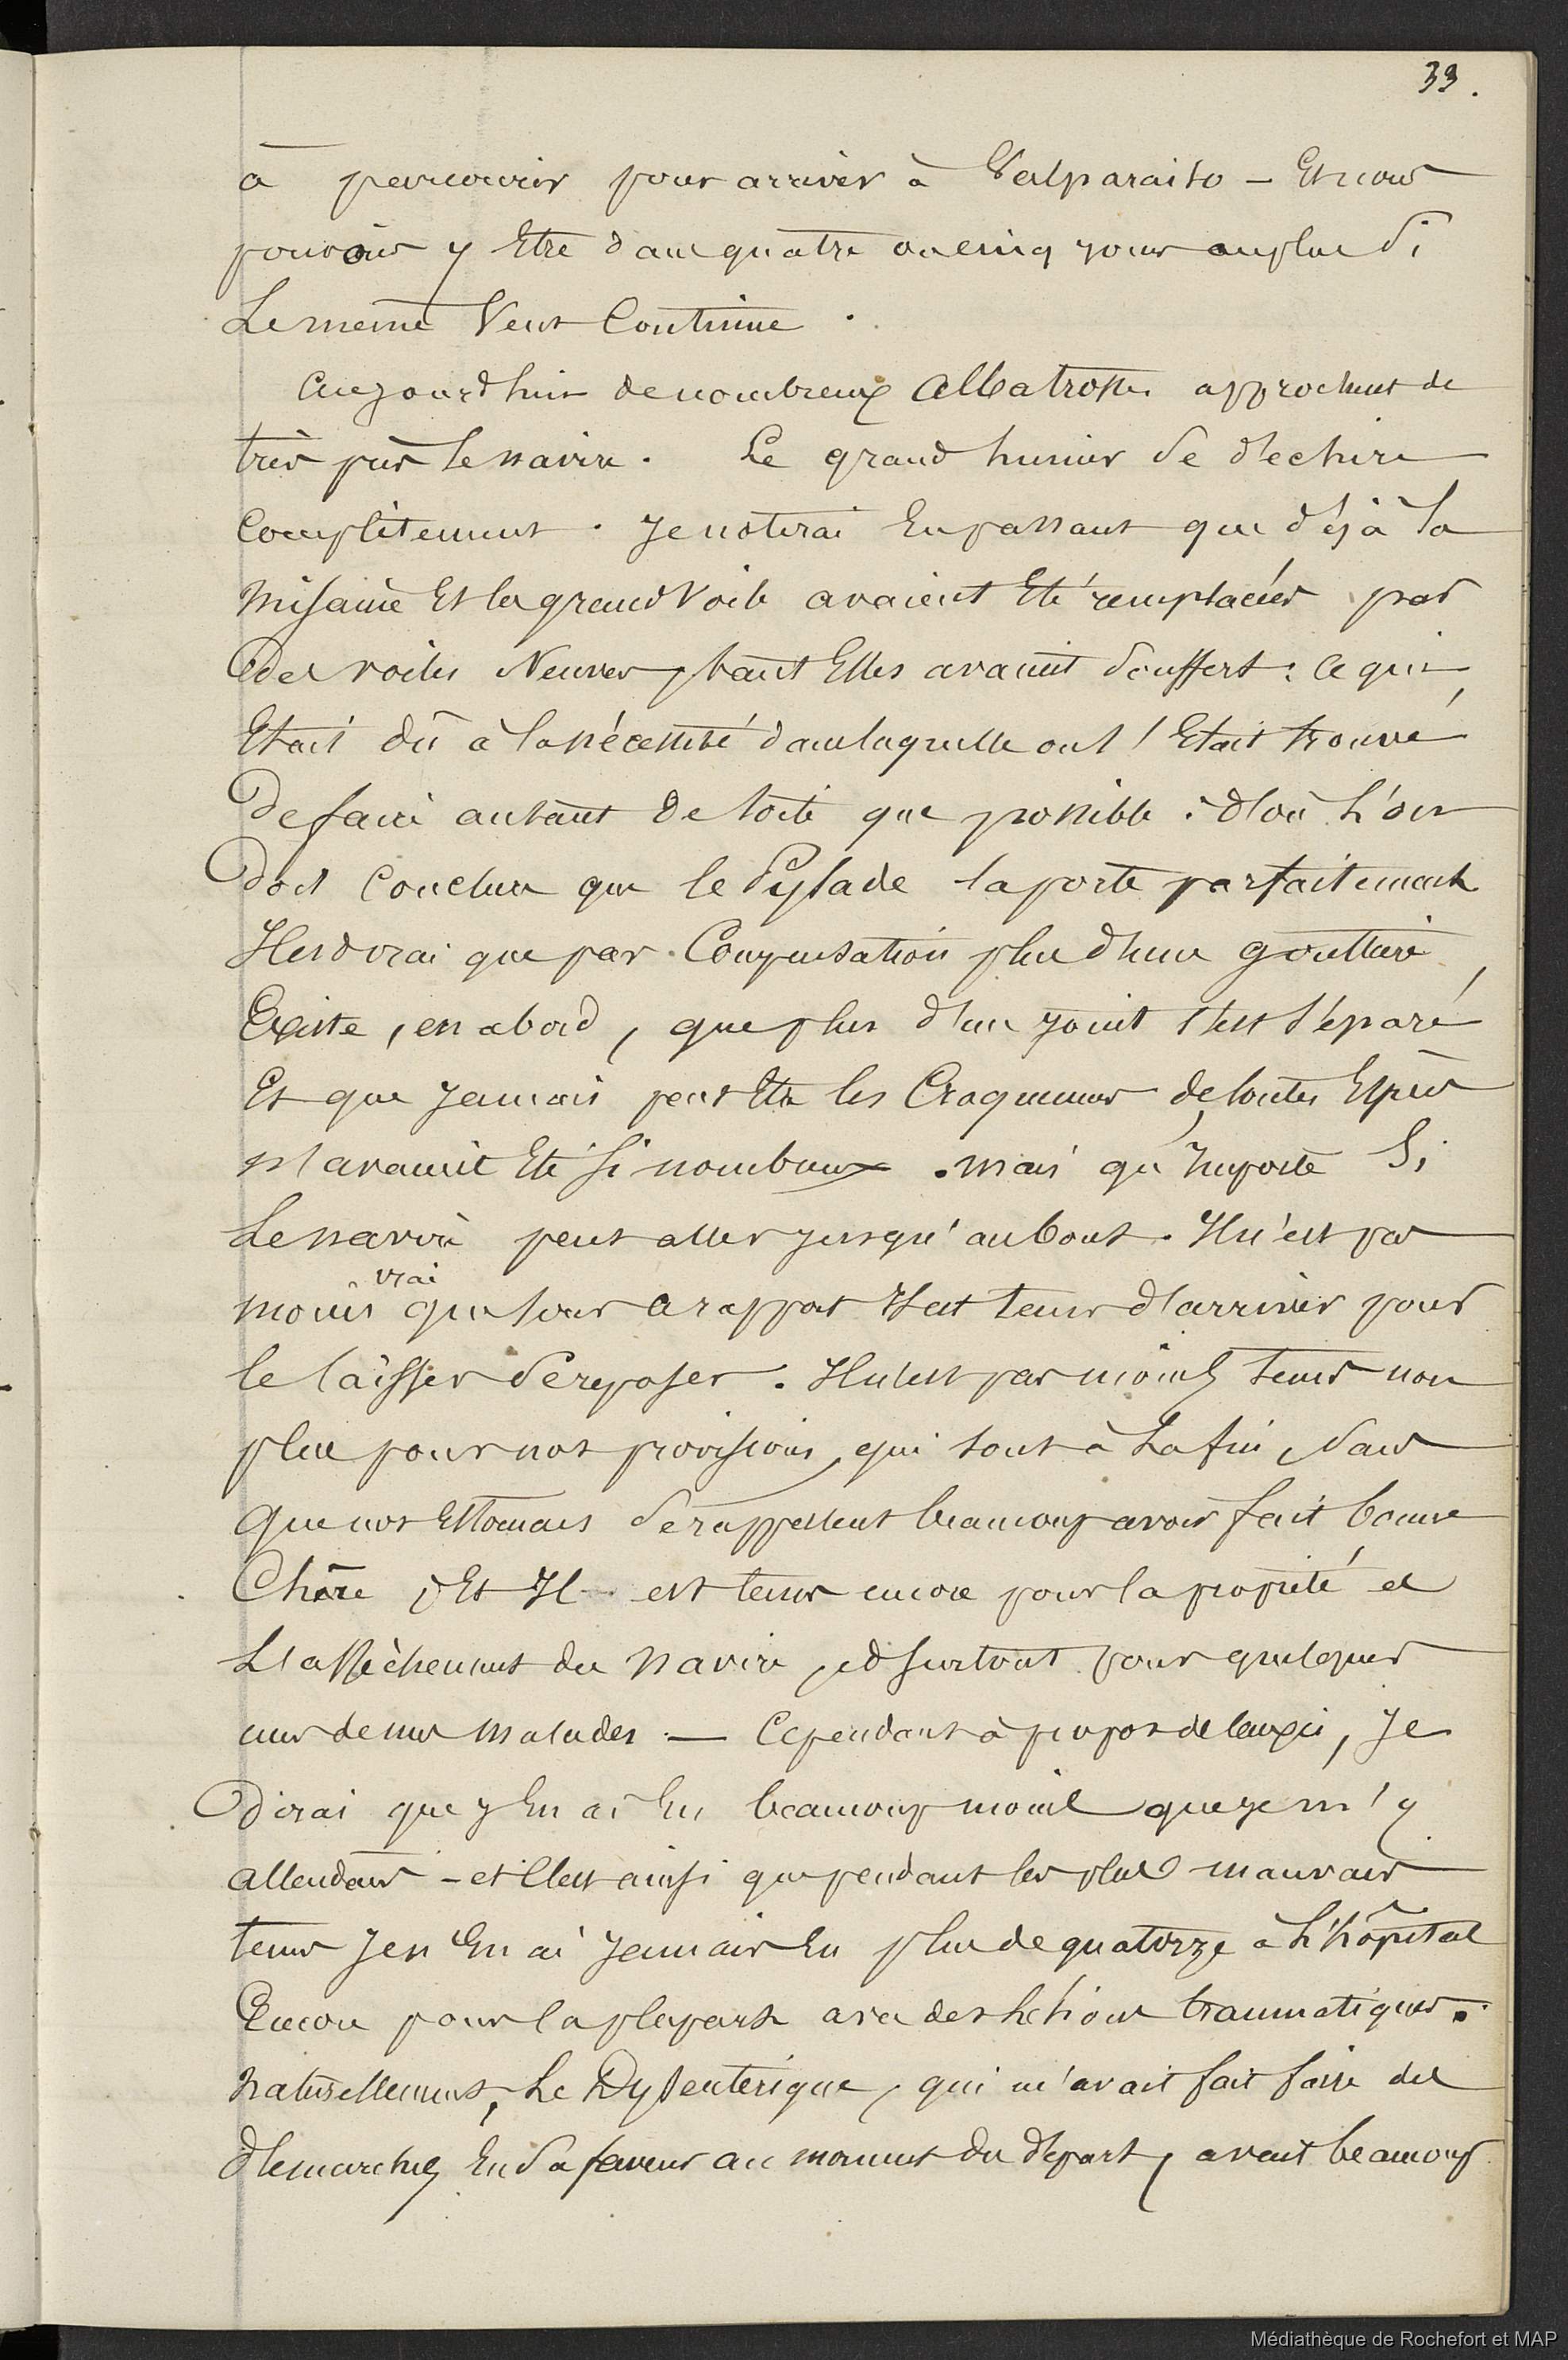 33.
à parcourir pour arriver à Valparaiso – Et nous
pouvons y Etre dans quatre ou cinq jours au plus Si
Le meme Vent Continue.
Aujourd'hui de nombreux Albatrosses approchent de
très près le navire. Le grand hunier Se déchire
Complètement. Je noterai En passant que déjà la
Misaine Et la grand Voile avaient Eté remplacées par
des voiles Neuves, tant Elles avaient Souffert : ce qui
Etait dû à la nécessité dans laquelle on s'Etait trouvé
De faire autant de toile que possible : d'où L'on
doit Conclure que le Pylade la porte parfaitement
Il est vrai que par Compensation plus d'une gouttière
Existe, en abord, que plus d'un joint s'est Séparé
Et que jamais peut Etre les Craquements de toutes Espèces
n'avaient Eté Si nombreux. mais qu'Importe Si
Le navire peut aller jusqu'au bout. Il n'est pas
moins vrai que sous ce rapport Il est tems d'arriver pour
le laisser Se reposer. Il n'est pas moins tems non
plus pour nos provisions, qui sont à La fin, Sans
que nos Estomacs Se rappellent beaucoup avoir fait bonne
Chère, Et Il est tems encore pour la propreté et
L'assèchement du navire, et surtout pour quelques
uns de nos malades. — Cependant à propos de ceux-ci, Je
dirai que j'En ai Eu beaucoup moins que je m'y
attendais – et c'est ainsi que pendant les plus mauvais
tems Je n'En ai Jamais Eu plus de quatorze à L'hôpital
Encore pour la plupart avec des lésions traumatiques.
Naturellement, Le Dysenterique, qui m'avait fait faire des
démarches En Sa faveur au moment du départ, avait beaucoup
Médiathèque de Rochefort et MAP